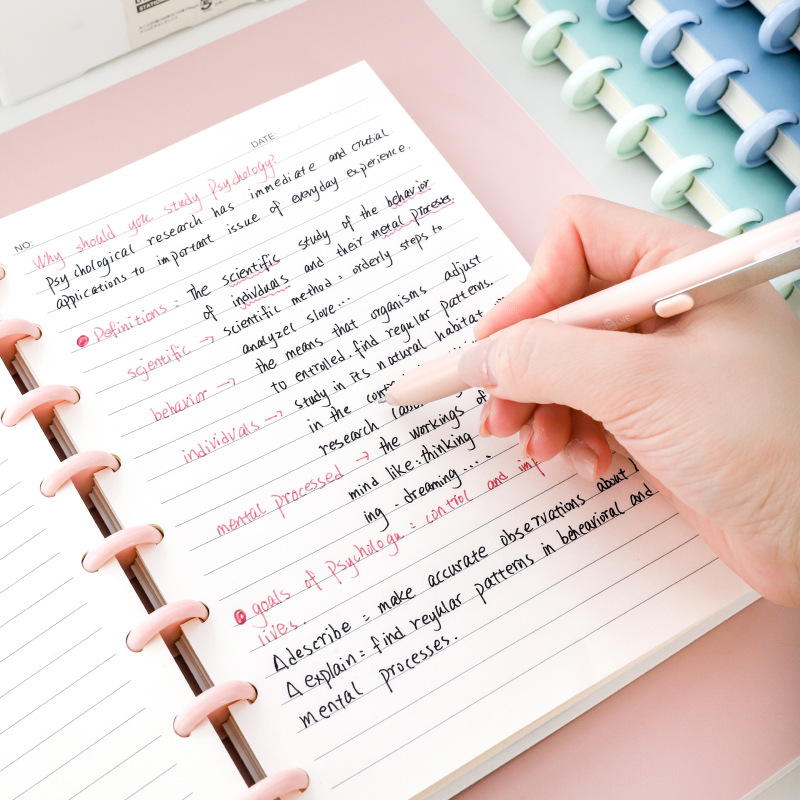 DATE:
NO:
Why should you study Psychology?
Psychological research has immediate and crucial
applications to important issue of everyday experience.
Definitions : The scientific study of the behavior
of indivduals and their metal processes.
scientific → scientific method : orderly steps to
analyzel slove...
behavior → the means that organisms adjust
to entrolled. find regular patterns.
individuals → study in its natural habitat
in the
research
mental processed → the workings of
mind like: thinking
ing. dreaming....
goals of Psychologu : control and
lives.
Δdescribe : make accurate observations about
Δ explain : find reyular patterns in beheavioral and
mental processes.